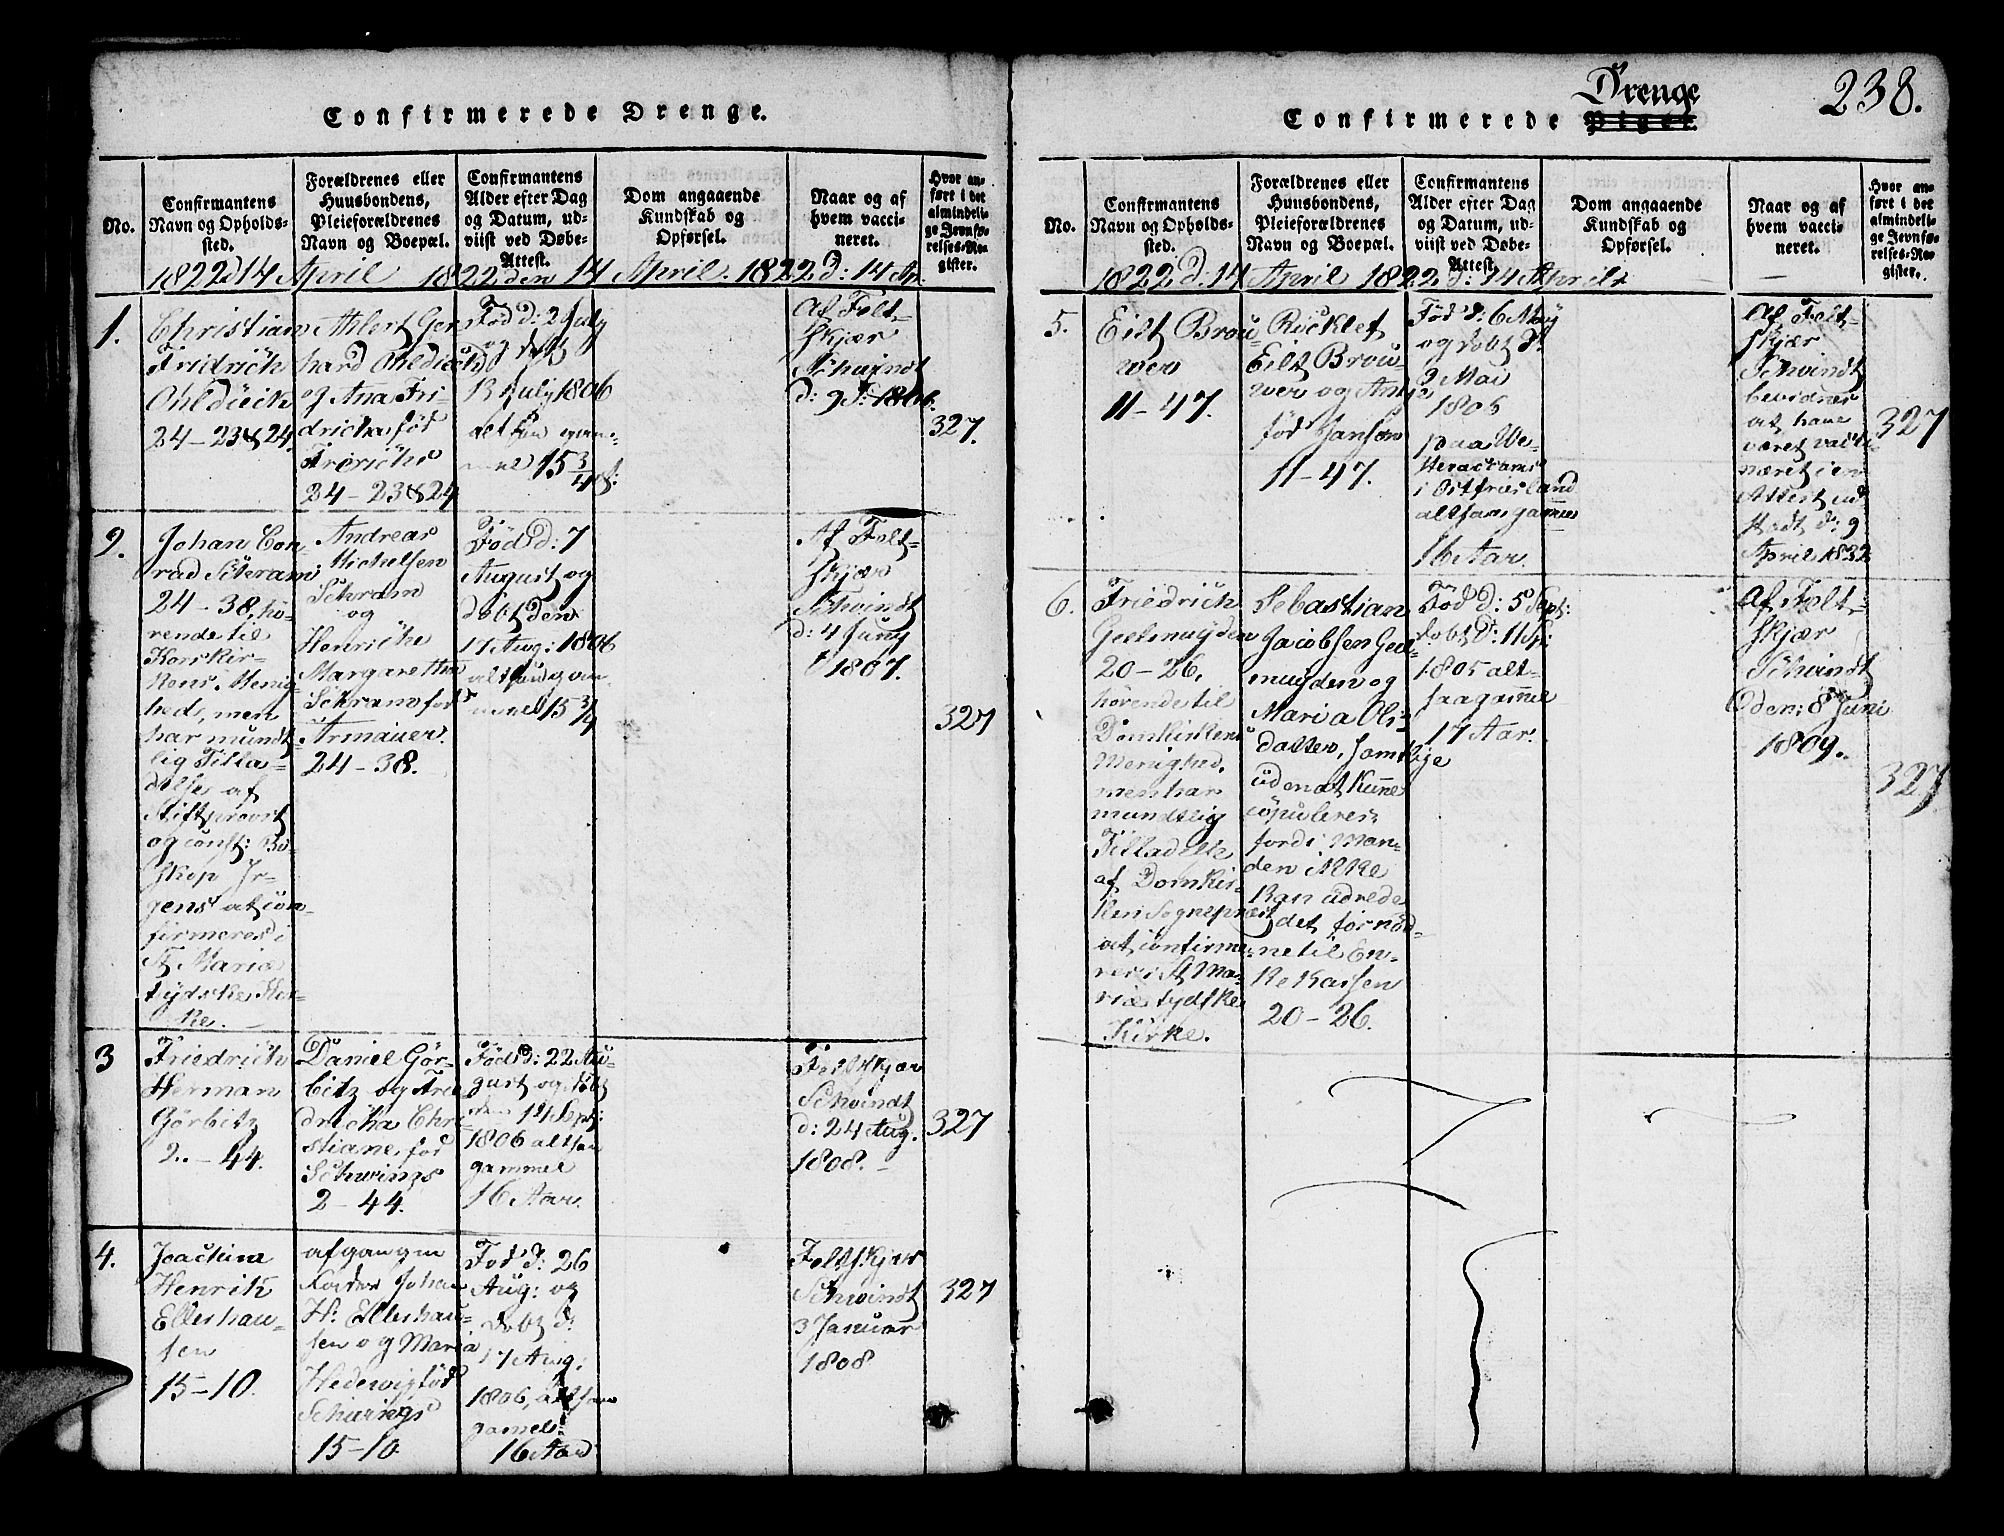 Confirmerede Drenge.
No.
Confirmantens
Navn og Opholds-
sted.
Forældrenes eller
Huusbondens,
Pleieforældrenes
Navn og Boepæl.
Confirmantens
Alder efter Dag
og Datum, ud-
viist ved Døbe-
Attest.
Dom angaaende
Kundskab og
Opførsel.
Naar og af
hvem vacci-
neret.
Hvor an-
ført i det
almindeli-
ge Jevnfø-
relses-Re-
gister.
1822 d 14 April 1822 den 14 April. 1822 d: 14 Ap.
1.
Christian
Fridrich
Ohldieck
24-23 & 24.
Ahlert Ger-
hard Ohldieck
og Ana Fri-
dricha fød
Frerichs
24-23 & 24
Fød d: 2 July
og døbt
13 July 1806
altsaa gam-
mel 15 3/4
Af Felt-
skjær
Schvindt
d: 9 1806.
327.
2.
Johan Con-
rad Schram
24-38, hø-
rende til
Korskir-
kens Menig-
hed, men
har mundt-
lig Tilla-
delse af
Stiftsprovst
og const: Bi-
skop Ir-
gens at con-
firmeres i
St Mariæ
tydske Kir-
ke.
Andreas
Michelsen
Schram
og
Henriche
Margaretha
Schram fød
Armauer.
24-38.
Fød d: 7
August og
døbt den
17 Aug: 1806
altsaa gam-
mel 15 3/4
Af Felt-
skjær
Schvindt
d: 4 Juny
1807.
327
3
Friedrich
Herman
Görbitz
2.-44.
Daniel Gör-
bitz og Frie
dricha Chri
stiane fød
Schwings
2-44.
Fød d: 22 Au-
gust og døbt
den 14 Sept:
1806 altsaa
gammel
16 Aar.
Feltskjær
Schvindt
d: 24 Aug.
1808.
327
4.
Joachim
Henrik
Elleshau-
sen
15-10.
afgangen
Johan
H: Elleshau-
sen og Maria
Hedewig fød
15-10
Fød d: 26
Aug: og
døbt d:
17 Aug:
1806, altsaa
gamel
16 Aar
Feltskjær
Schvindt
3 Januar
1808
327
238.
Drenge
Confirmerede Piger.
No.
Confirmantens
Navn og Opholds-
sted.
Forældrenes eller
Huusbondens,
Pleieforældrenes
Navn og Boepæl.
Confirmantens
Alder efter Dag
og Datum, ud-
viist ved Døbe-
Attest.
Dom angaaende
Kundskab og
Opførsel.
Naar og af
hvem vacci-
neret.
Hvor an-
ført i det
almindeli-
ge Jevnfø-
relses-Re-
gister.
1822 d. 14 April 1822 d: 14 April
5.
Eilt Brou-
wer
11-47.
Eilt Brou-
wer og Antje
fød Jansen
11-47.
Fød d: 6 May
og døbt d:
9 Mai
1806
paa We-
i Ostfriesland
altsaa gammel
16 Aar.
Af Felt-
skjær
Schvindt
bevidnes
at have
været vacci-
neret i en
Attest ud-
stædt d: 9
April 1832
327
6.
Friedrich
Geelmuyden
20-26.
hørende til
Domkirkens
Menighed.
men har
mundtlig
Tilladelse
af Domkir-
kens Sognepræst
at confirme-
res i St Ma-
riæ tydske
Kirke.
Sebastian
Jacobsen Geel-
muyden og
Maria Ols-
datter, samtlige
uden at kunne
copuleres
fordi Man-
den ikke
kan udrede
det fornød-
ne til En-
ke Kassen
20-26.
Fød d: 5 Sept:
døbt d: 11 Sp:
1805 alt-
saa gammel
17 Aar.
Af Felt-
skjær
Schvindt
den: 8 Juni
1809.
327